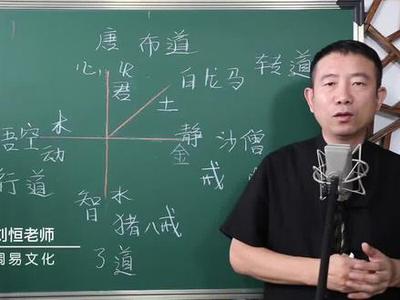 唐 布道
心 火
君
白龙马 转道
土
悟空 木
动
静 沙僧
金 戒
行道
智 水
猪八戒
了道
刘恒老师
周易文化